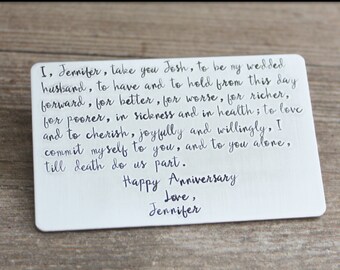 I, Jennifer, take you Josh, to be my wedded
husband, to have and to hold from this day
forward, for better, for worse, for richer,
for poorer, in sickness and in health; to love
and to cherish, joyfully and willingly, I
commit myself to you, and to you alone,
till death do us part.
Happy Anniversary
Love,
Jennifer